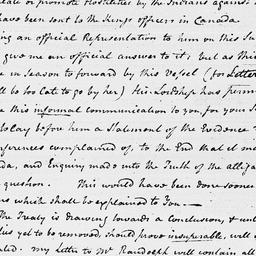 promote Hostilities by the Indians against
have been sent to the Kings officers in Canada
ing an official Representation to him on this Su
give me an official answer to it; but as this
be in Season to forward by this Vessel (for Letter
ll be too late to go by her) His Lordship has perm
ke this informal communication to you for your
to lay before him a Statement of the Evidence
inferences complained of, to the End that it m
da, and Enquiry made into the Truth of the alleg
question. This would have been done some
ns which shall be explained to You.—
The Treaty is drawing towards a Conclusion, & unl
lties yet to be removed, should prove insuperable, will
ded. My Letter to Mr Randolph will contain all